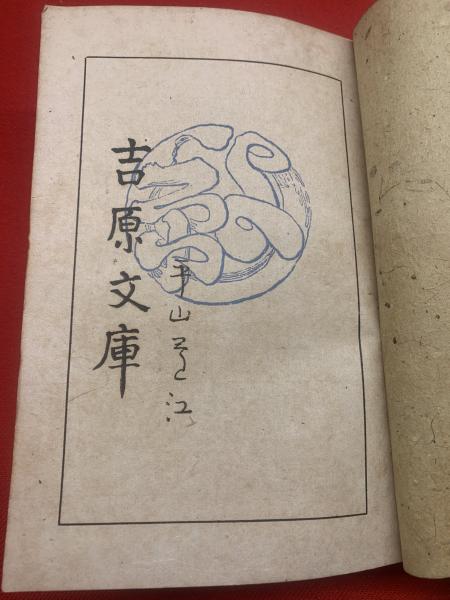 平山芦江
吉原文庫